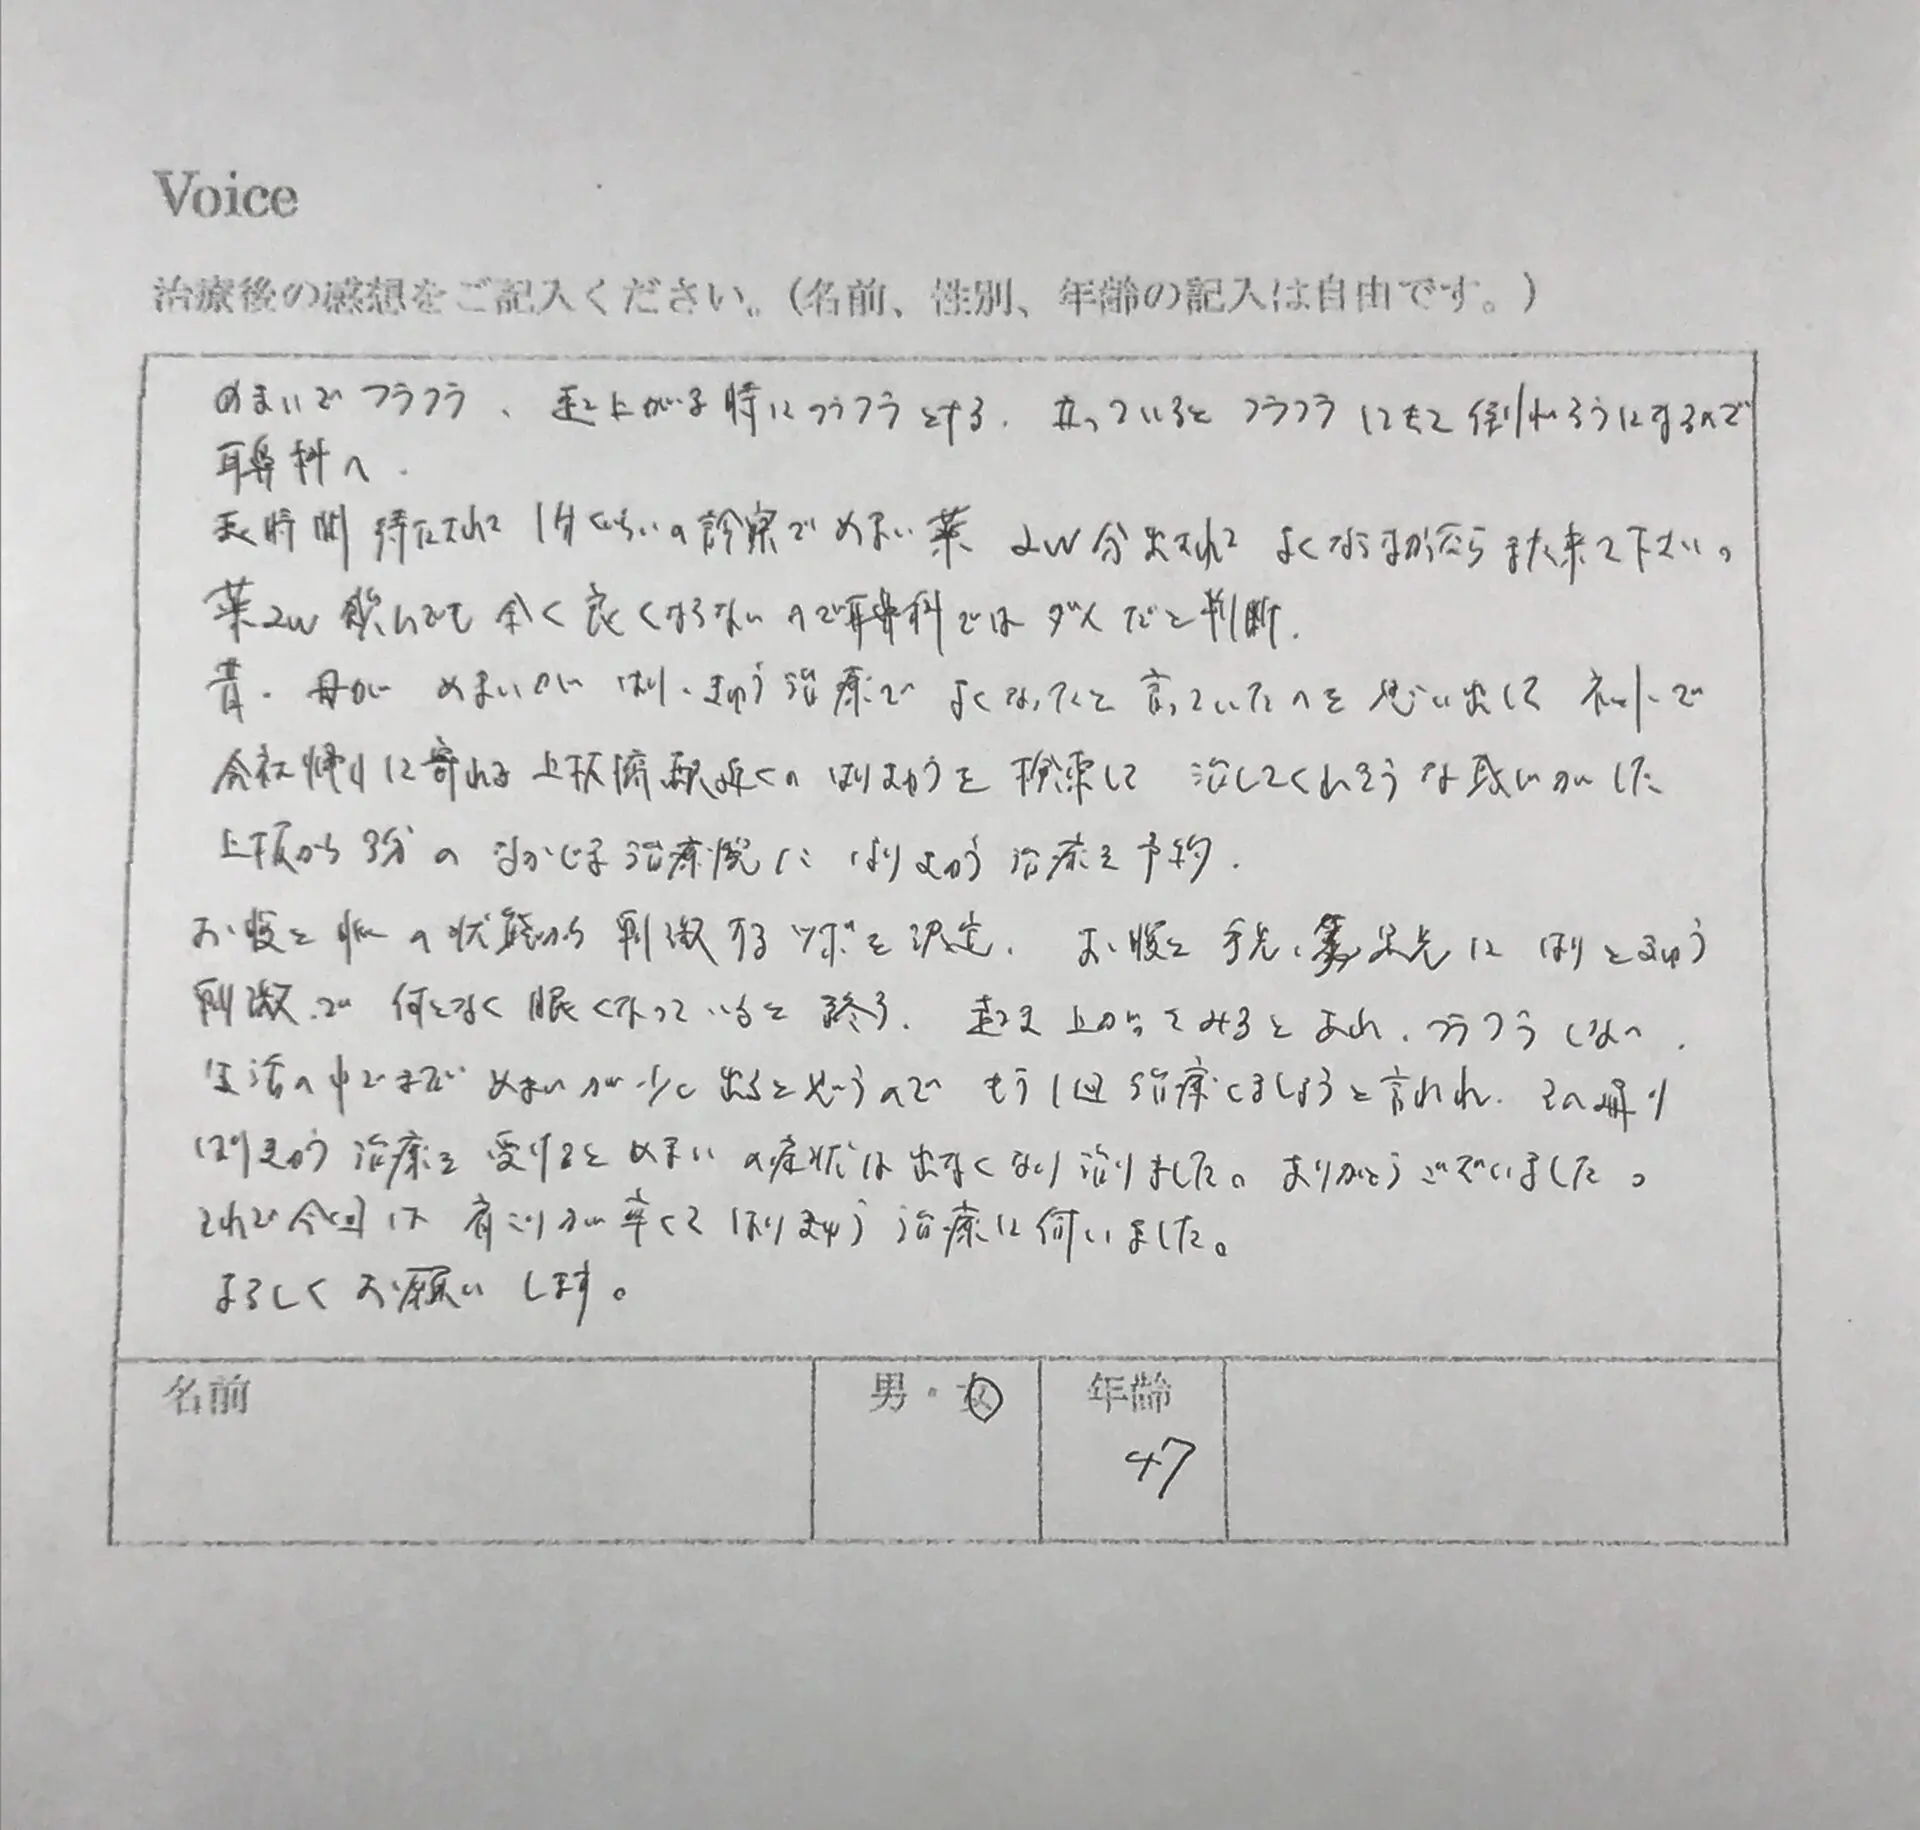 Voice
治療後の感想をご記入ください。（名前、性別、年齢の記入は自由です。）
めまいでフラフラ、起き上がる時にフラフラとする. 立っているとフラフラにて倒れそうにするので
耳鼻科へ.
長時間待たされて1分くらいの診察でめまい薬 2W分出されて よくならなかったらまた来て下さい。
薬2W飲んでも全く良くならないので耳鼻科ではダメだと判断.
昔. 母が めまいが はり・きゅう治療で よくなったと言っていたのを思い出して ネットで
会社帰りに寄れる上板橋駅近くの はりきゅうを検索して 治してくれそうな気がした
上板から3分の なかじま治療院に はりきゅう治療を予約.
お腹と脈の状態から刺激するツボを決定. お腹と手先、足先に はりときゅう
刺激で 何となく眠くなっていると終る. 起き上がってみるとあれ、フラフラしない.
生活の中でまだめまいが少し出ると思うので もう1回治療しましょうと言われ. その通り
はりきゅう治療を受けるとめまいの症状は出なくなり治りました。ありがとうございました。
それで今回は 肩こりが辛くて はりきゅう治療に伺いました。
よろしくお願いします。
名前 男・女 年齢
47